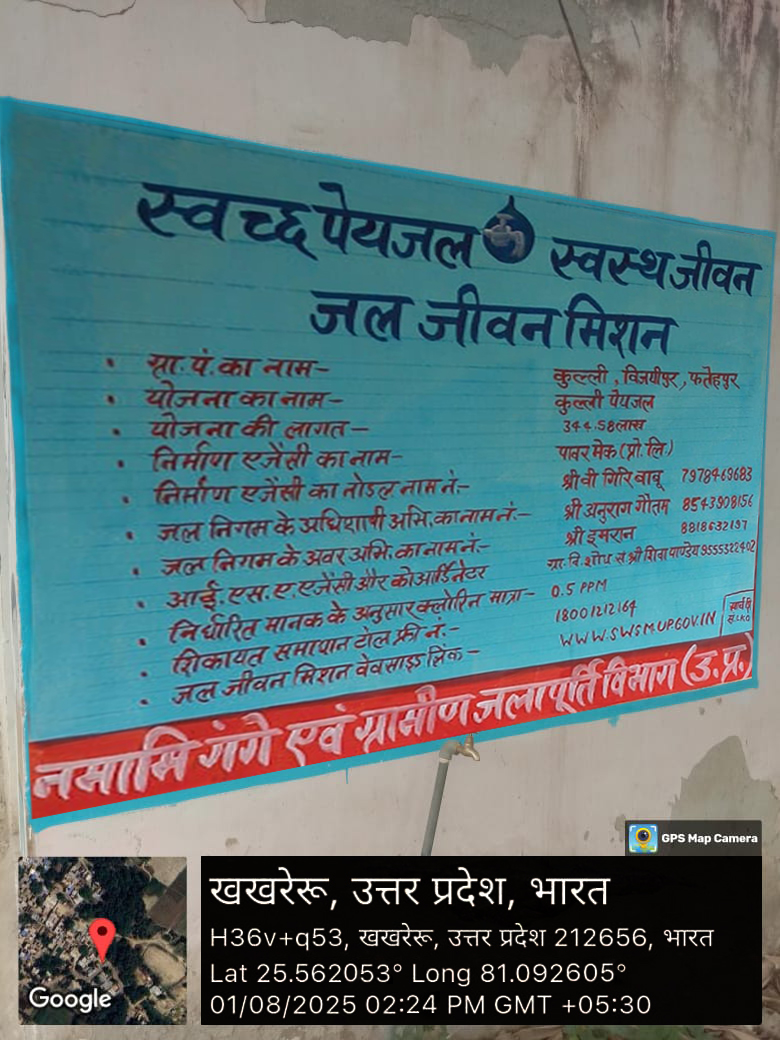 स्वच्छ पेयजल स्वस्थ जीवन
जल जीवन मिशन
• ग्रा. पं. का नाम– कुल्ली, विजयीपुर, फतेहपुर
• योजना का नाम– कुल्ली पेयजल
• योजना की लागत– 344.58 लाख
• निर्माण एजेंसी का नाम– पावर मेक (प्रो. लि.)
• निर्माण एजेंसी का नोडल नाम नं.– श्री वी गिरि बाबू 7978469683
• जल निगम के अधिशाषी अभि. का नाम नं.– श्री अनुराग गौतम 8543908156
• जल निगम के अवर अभि. का नाम नं.– श्री इमरान 8818632197
• आई. एस. ए. एजेंसी और कोआर्डिनेटर ग्रा. वि. शोध सं. श्री शिवा पाण्डेय 9555322402
• निर्धारित मानक के अनुसार क्लोरिन मात्रा– 0.5 PPM
• शिकायत समाधान टोल फ्री नं.– 18001212164
• जल जीवन मिशन वेबसाइड लिंक– WWW.SWSM.UP.GOV.IN
नमामि गंगे एवं ग्रामीण जलापूर्ति विभाग (उ. प्र.)
GPS Map Camera
खखरेरू, उत्तर प्रदेश, भारत
H36v+q53, खखरेरू, उत्तर प्रदेश 212656, भारत
Lat 25.562053° Long 81.092605°
01/08/2025 02:24 PM GMT +05:30
Google